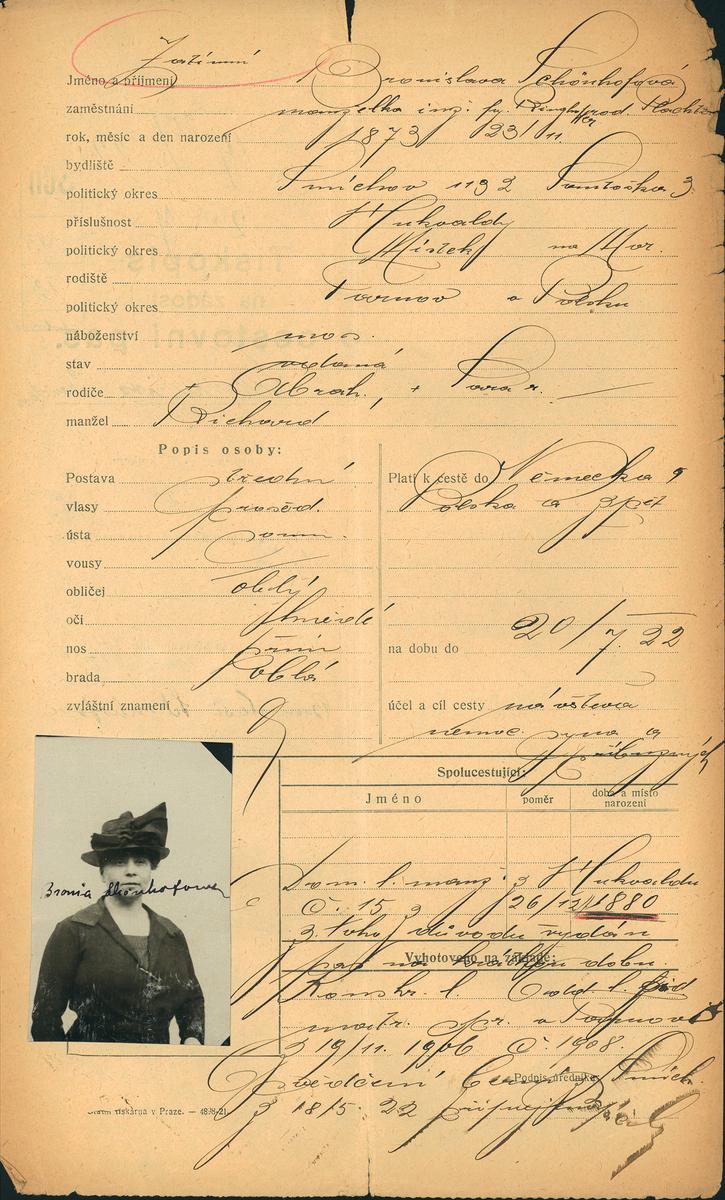 Zatímní
Jméno a příjmení Bronislava Schönhofová
zaměstnání manželka inž. fy. Ringhoffer rod.
rok, měsíc a den narození 1873 23/11.
bydliště
politický okres Smíchov 1192 3
příslušnost Hukvaldy
politický okres Místek na Mor.
rodiště
politický okres Tarnov v Polsku
náboženství mos.
stav vdaná
rodiče Abrah. + Sara r.
manžel Richard
Popis osoby:
Postava střední
vlasy prošed.
ústa
vousy
obličej oblý
oči hnědé
nos
brada oblá
zvláštní znamení
Platí k cestě do Německa,
Polska a zpět
na dobu do 20/7. 22
účel a cíl cesty návštěva
nemoc. syna a
příbuzných
Spolucestující:
Jméno poměr doba a místo narození
Dom. l. manž. z Hukvaldu
č. 15 z 26/12 1880
z toho důvodu vydán
pas na kratší dobu.
Vyhotoveno na základě:
Konskr. l. Odd. l.
matr. spr. v Tarnově
z 19/11. 1906 č. 1908.
Podpis úředníka:
z 18/5. 22
Bronia Schönhofowa
Státní tiskárna v Praze. — 4898-21.